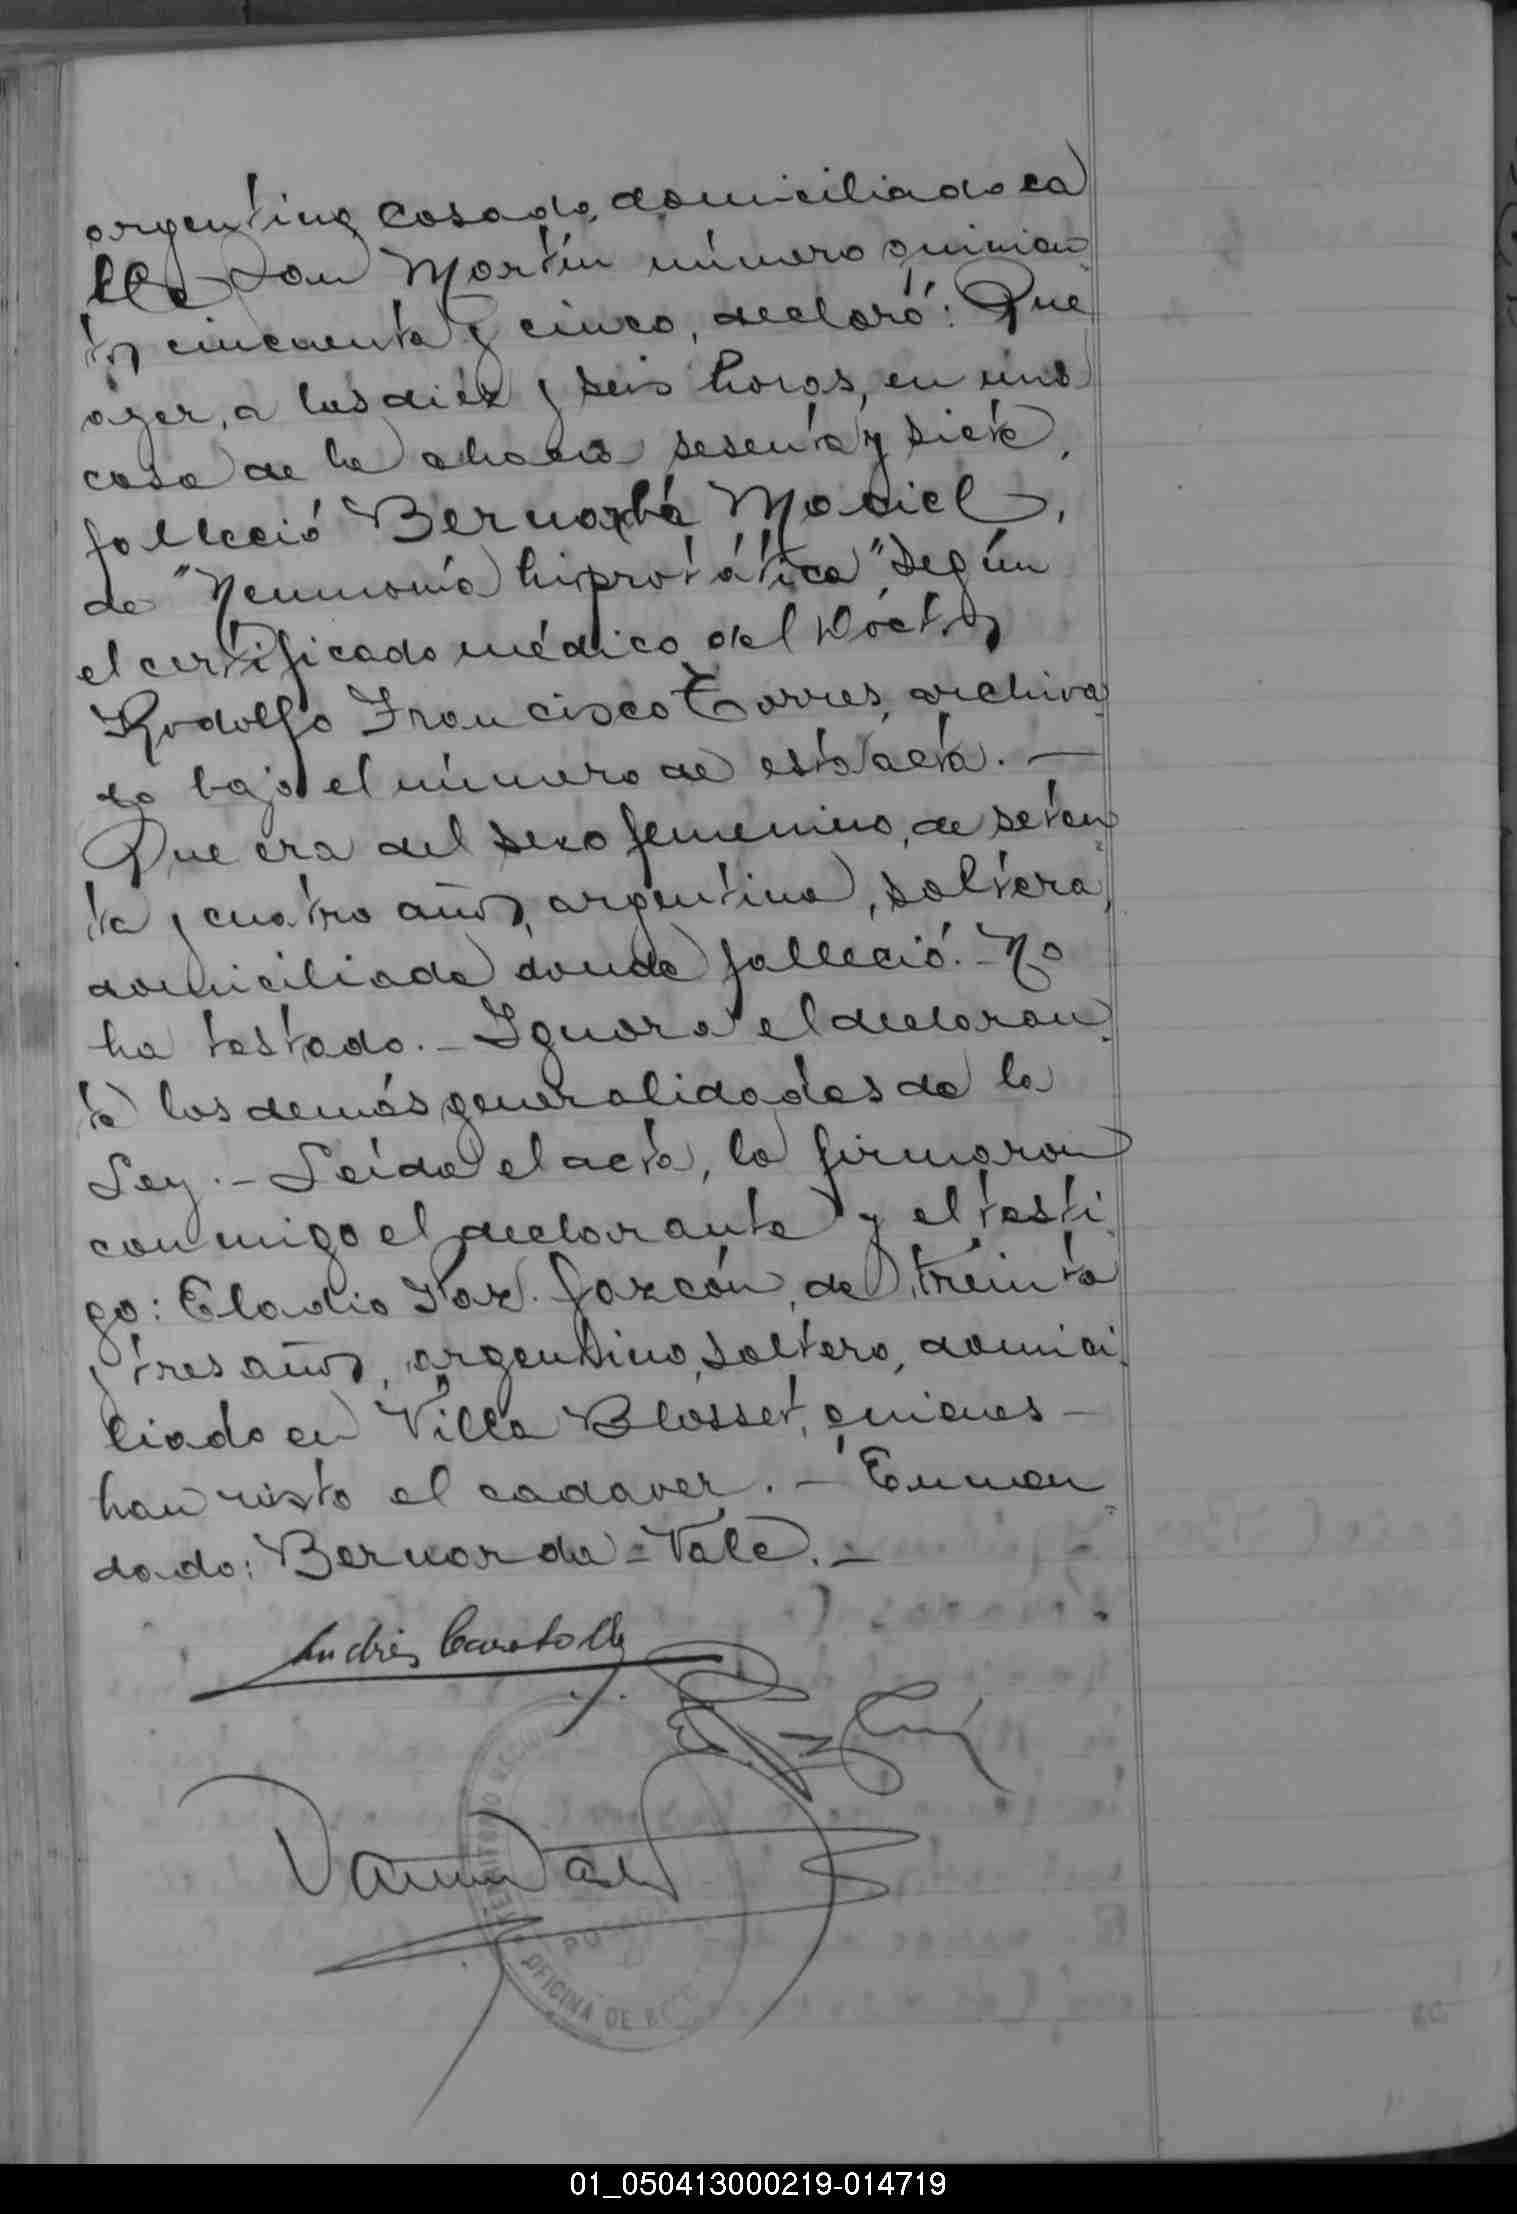 argentino, casado, domiciliado ca
lle San Martín número quinien
tos cincuenta y cinco, declaró: Que
ayer, a las diéz y seis horas, en una
casa de la chacra sesenta y siete,
falleció Bernarda Maciel,
de "Neumonía hipostática" según
el certificado médico del Doctor
Rodolfo Francisco Torres, archiva
do bajo el número de esta acta. —
Que era del sexo femenino, de seten
ta y cuatro años, argentina, soltera,
domiciliada donde falleció. - No
ha testado. - Ignora el declaran
te las demás generalidades de la
Ley. - Leída el acta, la firmaron
conmigo el declarante y el testi
go: Eladio Paz. Garzón, de treinta
y tres años, argentino, soltero, domici
liado en Villa Blosset, quienes -
han visto el cadaver. - Enmen
dado: Bernarda = Vale. -
Andrés
OFICINA DE
01_050413000219-014719